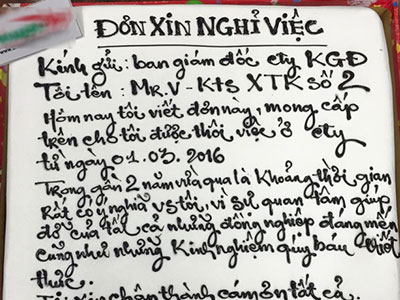 ĐƠN XIN NGHỈ VIỆC
Kính gửi : ban giám đốc cty KGĐ
Tôi tên : MR.V - Kts XTK số 2
Hôm nay tôi viết đơn này, mong cấp
trên cho tôi được thôi việc ở cty
từ ngày 01.03.2016
Trong gần 2 năm vừa qua là khoảng thời gian
Rất có ý nghĩa vs tôi, vì sự quan tâm giúp
đỡ của tất cả những đồng nghiệp đáng mến
cũng như những kinh nghiệm quý báu viết
thức.
Tôi xin chân thành cám ơn tất cả.